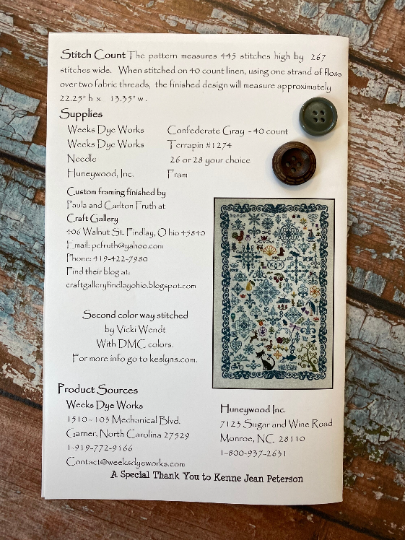 Stitch Count The pattern measures 445 stitches high by 267
stitches wide. When stitched on 40 count linen, using one strand of floss
over two fabric threads, the finished design will measure approximately
22.25" h x 13.35" w.
Supplies
Weeks Dye Works Confederate Gray - 40 count
Weeks Dye Works Terrapin #1274
Needle 26 or 28 your choice
Huneywood, Inc. Fram
Custom framing finished by
Paula and Carlton Fruth at
Craft Gallery
406 Walnut St. Findlay, Ohio 45840
Email: pcfruth@yahoo.com
Phone: 419-422-7980
Find their blog at:
craftgalleryfindlayohio.blogspot.com
Second color way stitched
by Vicki Wendt
With DMC colors.
For more info go to keslyns.com.
Product Sources
Weeks Dye Works
1510-103 Mechanical Blvd.
Garner, North Carolina 27529
1-919-772-9166
Contact@weeksdyeworks.com
Huneywood Inc
7123 Sugar and Wine Road
Monroe, NC. 28110
1-800-937-2631
A Special Thank You to Kenne Jean Peterson